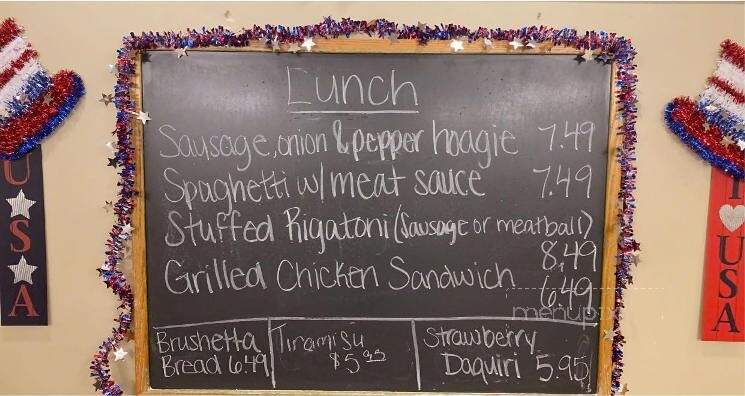 Lunch
Sausage, onion & pepper hoagie 7.49
Spaghetti w/ meat sauce 7.49
Stuffed Rigatoni (Sausage or meatball)
8.49
Grilled Chicken Sandwich
6.49
menupix
Brushetta
Bread 6.49
Tiramisu
$5.95
Strawberry
Daquiri 5.95
USA
I
USA